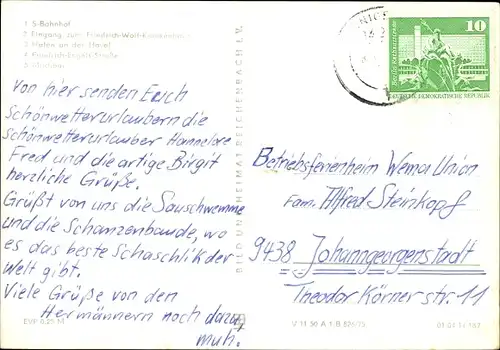 1 S-Bahnhof
2 Eingang zum Friedrich-Wolf-Krankenhaus
3 Hafen an der Havel
4 Friedrich-Engels-Straße
Von hier senden Euch
Schönwetterurlaubern die
Schönwetterurlauber Hannelore
Fred und die artige Birgit
herzliche Grüße.
Grüßt von uns die Sauschwemme
und die Schanzenbaude, wo
es das beste Schaschlik der
Welt gibt.
Viele Grüße von den
Hermännern noch dazu,
muh.
EVP 0,25 M
BILD UND HEIMAT REICHENBACH I. V.
V 11 50 A 1 B
10
DEUTSCHE DEMOKRATISCHE REPUBLIK
Betriebsferienheim Wema Union
Fam. Alfred Steinkopf
9438 Johanngeorgenstadt
Theodor Körner str. 11